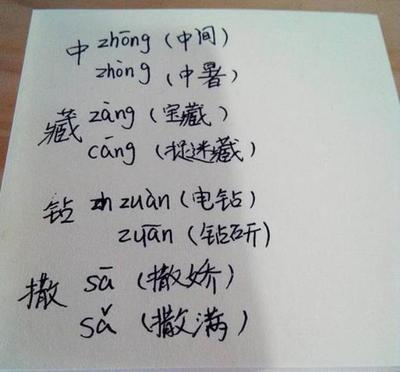 中 zhōng (中间)
zhòng (中暑)
藏 zàng (宝藏)
cáng (捉迷藏)
钻 zuàn (电钻)
zuān (钻研)
撒 sā (撒娇)
sǎ (撒满)